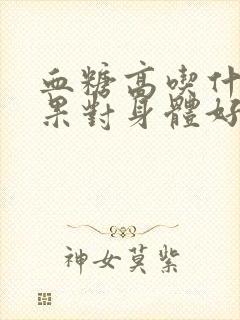 血糖高喫什
果對身體好
神女莫紫